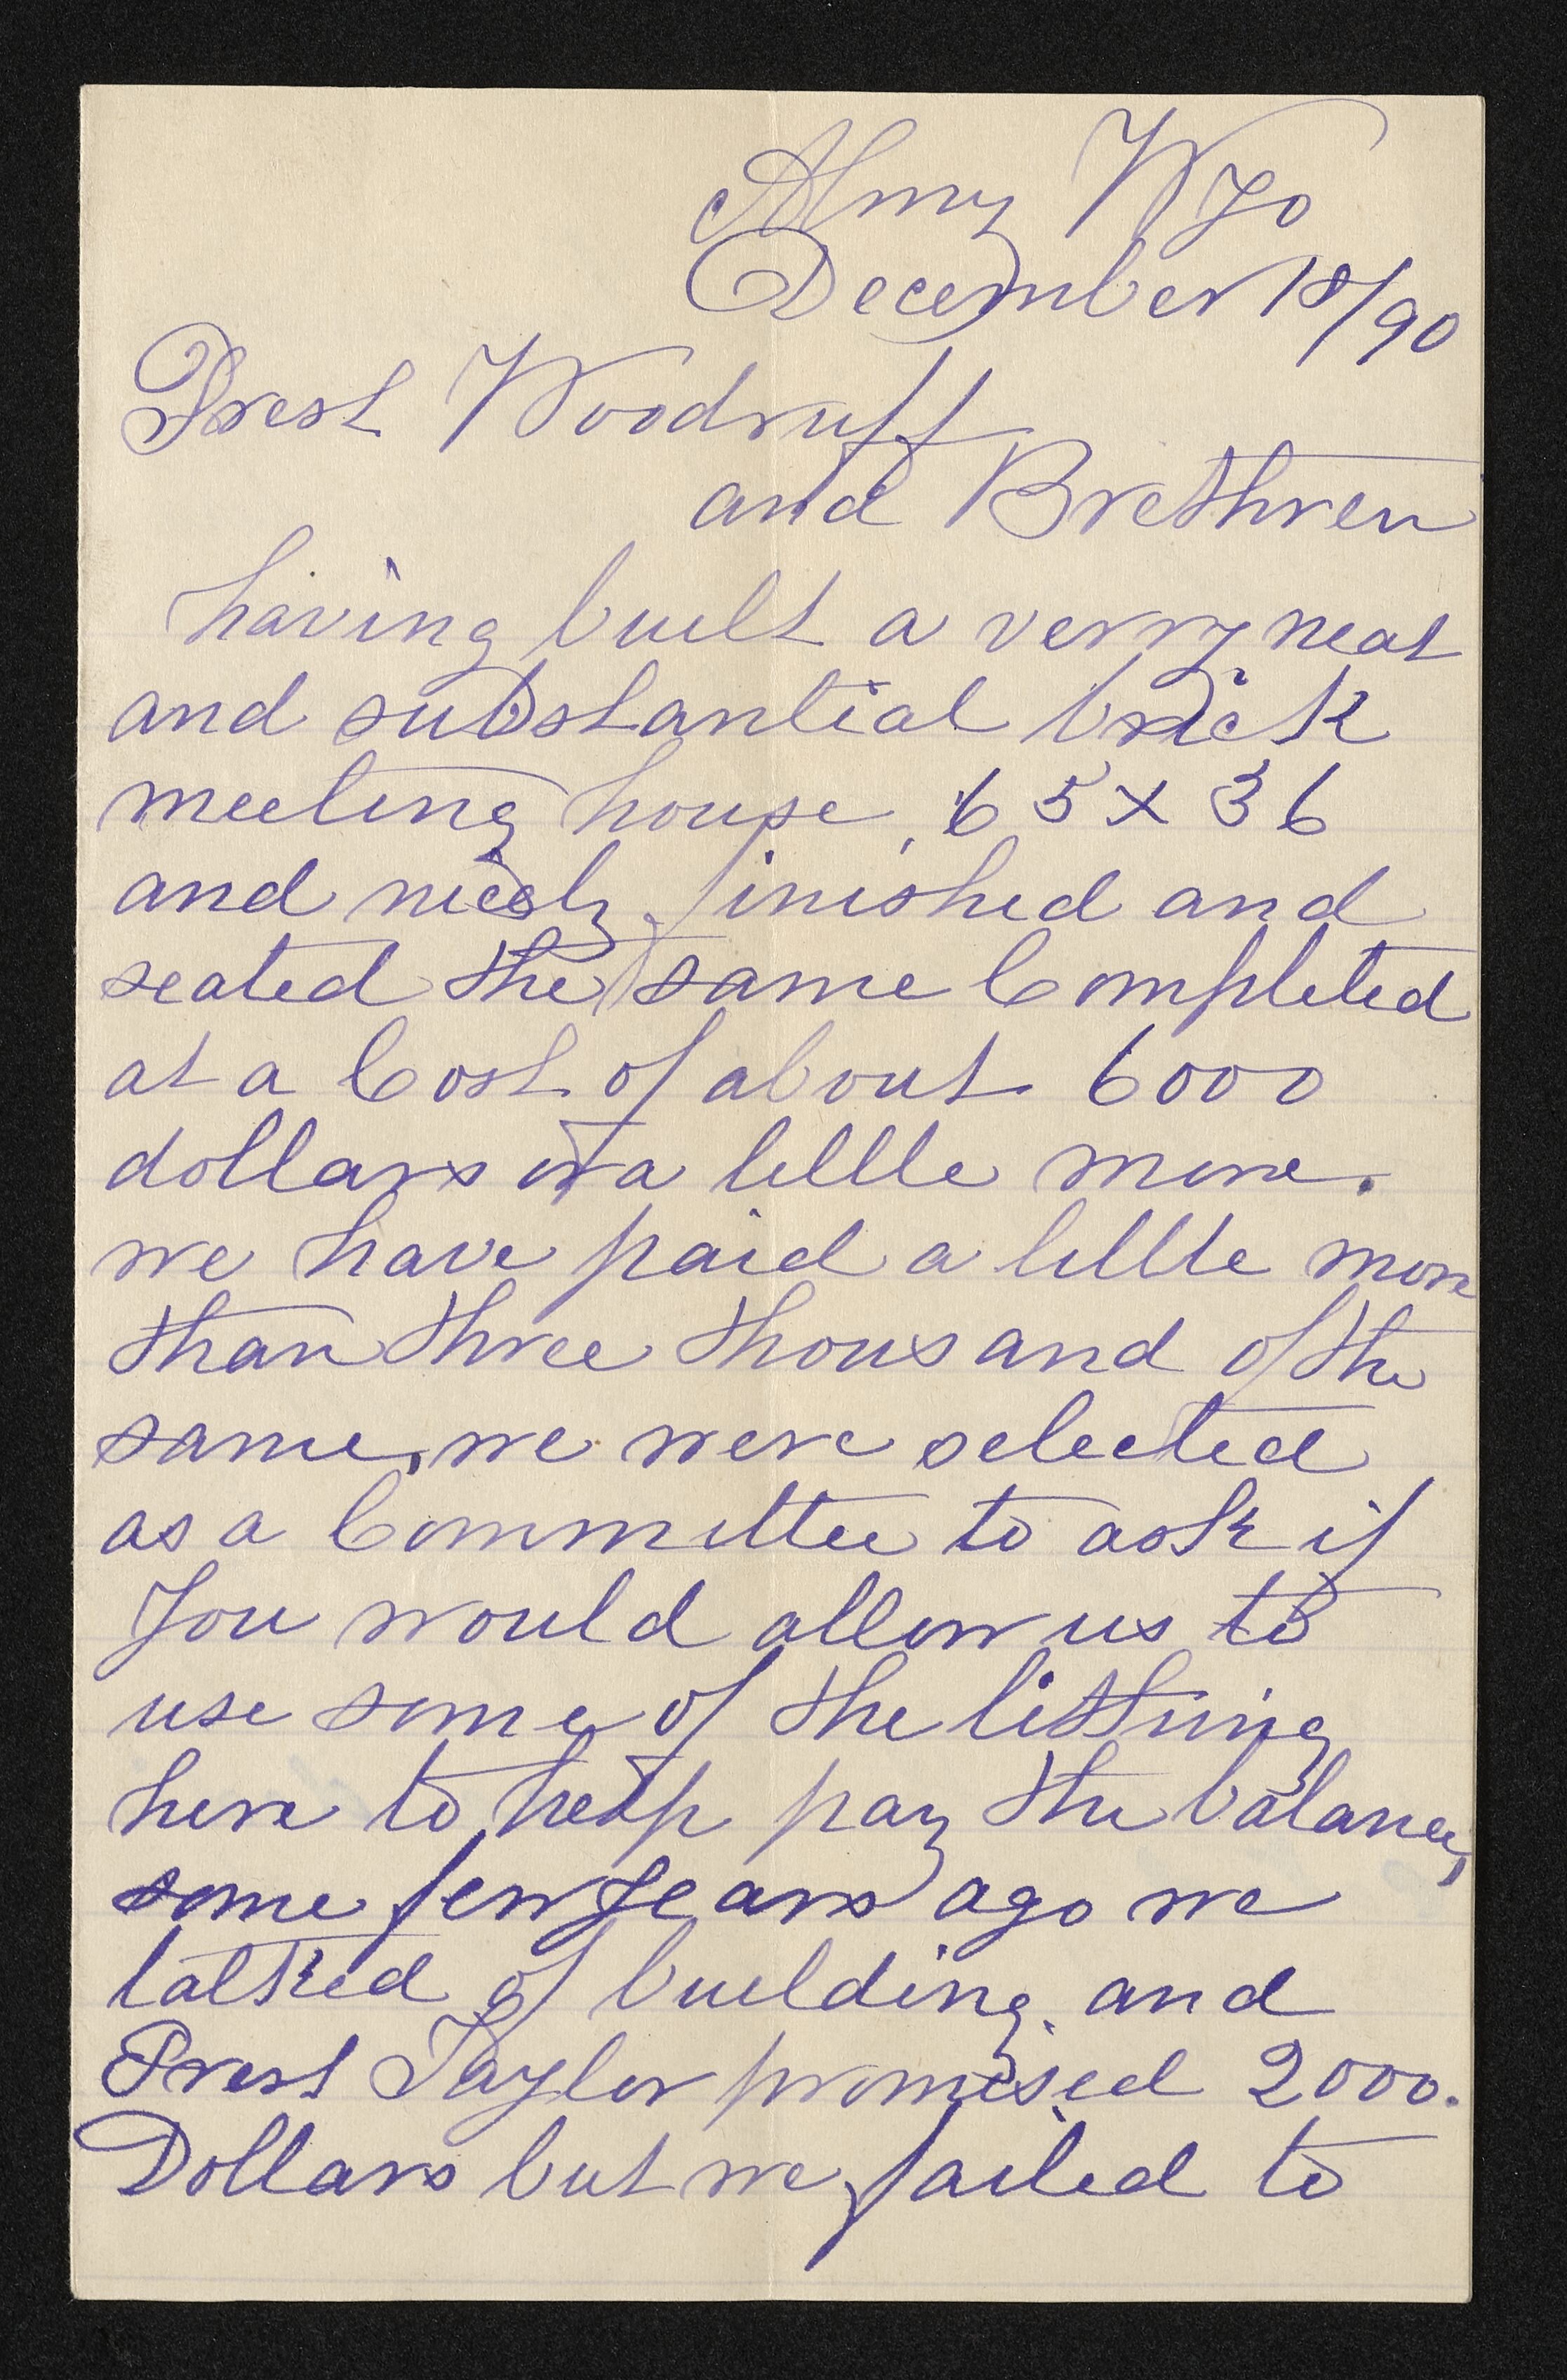 Almy Wyo
December 18/90
Prest Woodruff
and Brethren
having built a verry neat
and substantial brick
meeting house, 65 x 36
and nicely finished and
seated the same Completed
at a Cost of about 6000
dollars or a little more.
we have paid a little more
than three thousand of the
same, we were selected
as a Committee to ask if
you would allow us to
use some of the tithing
here to help pay the balance,
some few years ago we
talked of building. and
Prest Taylor promised 2000.
Dollars but we failed to